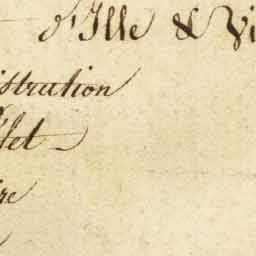 d'Ille & Vi
istration
let
re